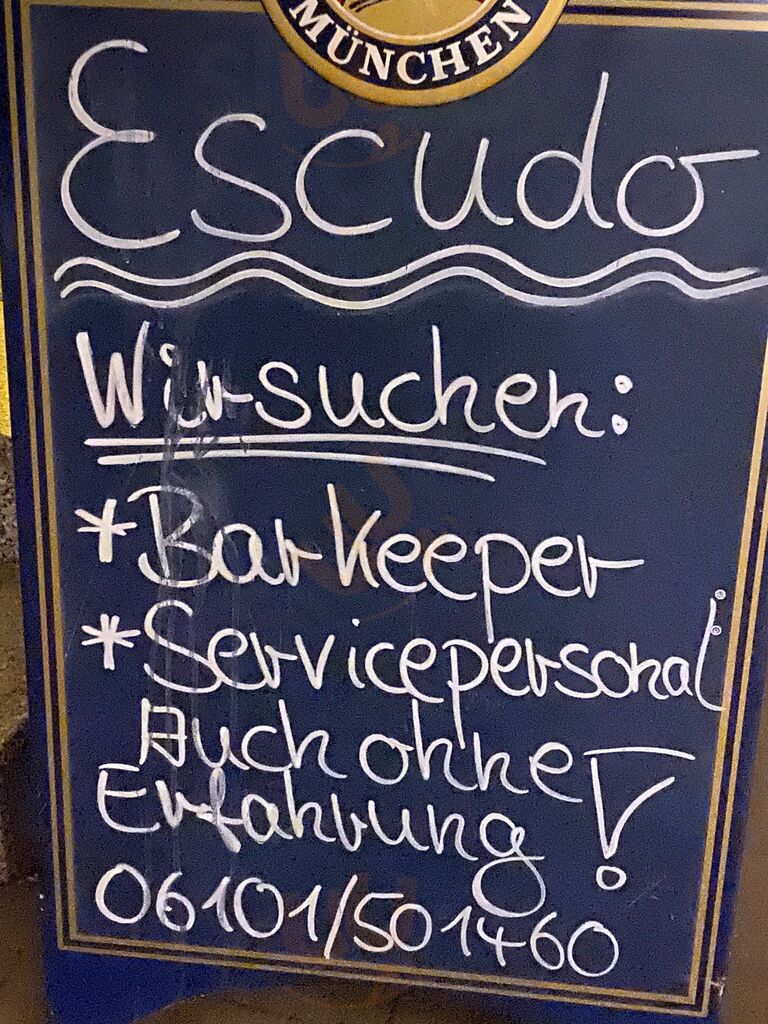 MÜNCHEN
Escudo
Wir suchen:
*Barkeeper
*Servicepersonal
Auch ohne
Erfahrung!
06101/501460